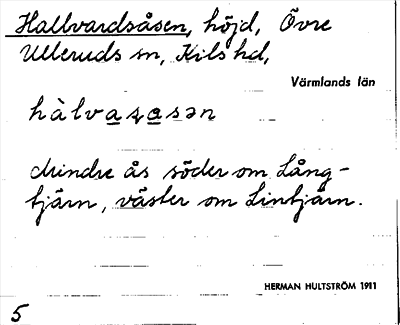 Hallvardsåsen, höjd, Övre
Ulleruds sn, Kils hd,
Värmlands län
hàlvaʂasən
Mindre ås söder om Lång-
tjärn, väster om Lintjärn.
HERMAN HULTSTRÖM 1911
5